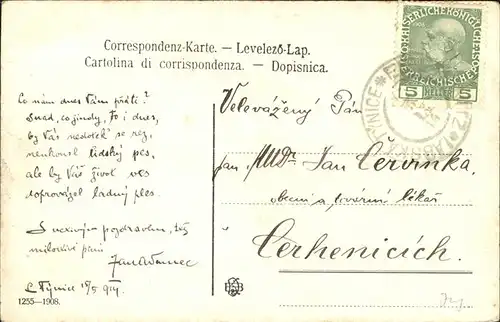 Correspondenz-Karte. — Levelező-Lap.
Cartolina di corrispondenza. — Dopisnica.
5 HELLER 5
TÝNICE
Co nám dnes Vám přáti?
Snad, co jindy, to i dnes,
by Vás nedotek' se rez,
nenkousl lidský pes,
ale by Váš život ves
doprovázel ladný ples.
S pozdravem, též
milostivé paní
Jan Adamec
Týnice 19/5
1255—1908.
Velevážený Pán
pan MUDr Jan Červinka
obecní a tovární lékař
Cerhenicích.